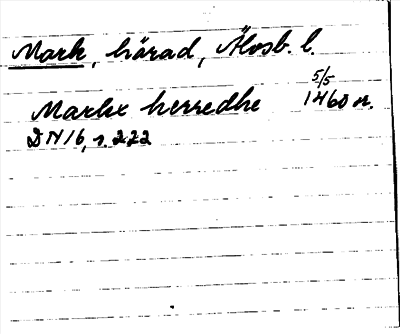 Mark, härad, Älvsb. l.
Marke herredhe 5/5 1460 n.
DN 16, s. 222